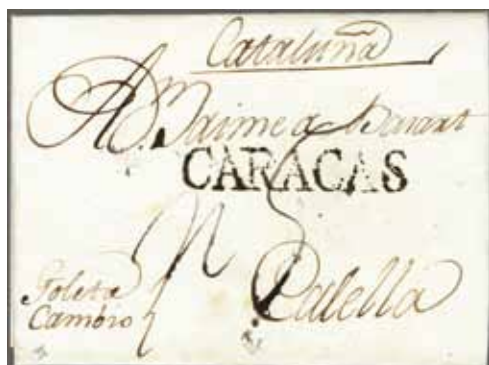 Cataluña
A Dn. Jaime
CARACAS
Calella
Goleta
Cambio